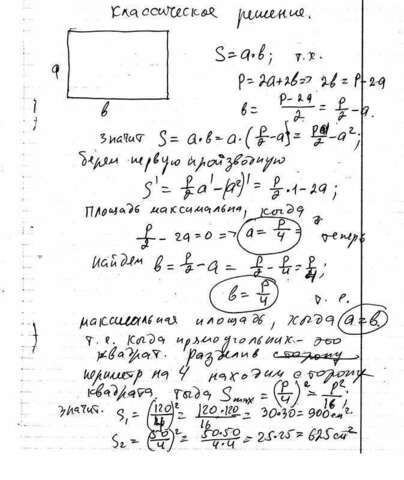 Классическое решение.
a
b
S = a·b; т.к.
P = 2a+2b => 2b = P-2a
b = (P-2a)/2 = P/2 - a.
значит S = a·b = a·(P/2 - a) = Pa/2 - a²;
берем первую производную
S' = P/2 a' - (a²)' = P/2 · 1 - 2a;
Площадь максимальна, когда
P/2 - 2a = 0 => a = P/4 = теперь
найдем b = P/2 - a = P/2 - P/4 = P/4;
b = P/4 т.е.
максимальная площадь, когда a = b
т.е. когда прямоугольник - это
квадрат. Разделив сторону
периметр на 4 находим сторону
квадрата, тогда Smax = (P/4)² = P²/16;
значит. S₁ = (120/4)² = 120·120/16 = 30·30 = 900 см².
S₂ = (50/4)² = 50·50/4·4 = 25·25 = 625 см²